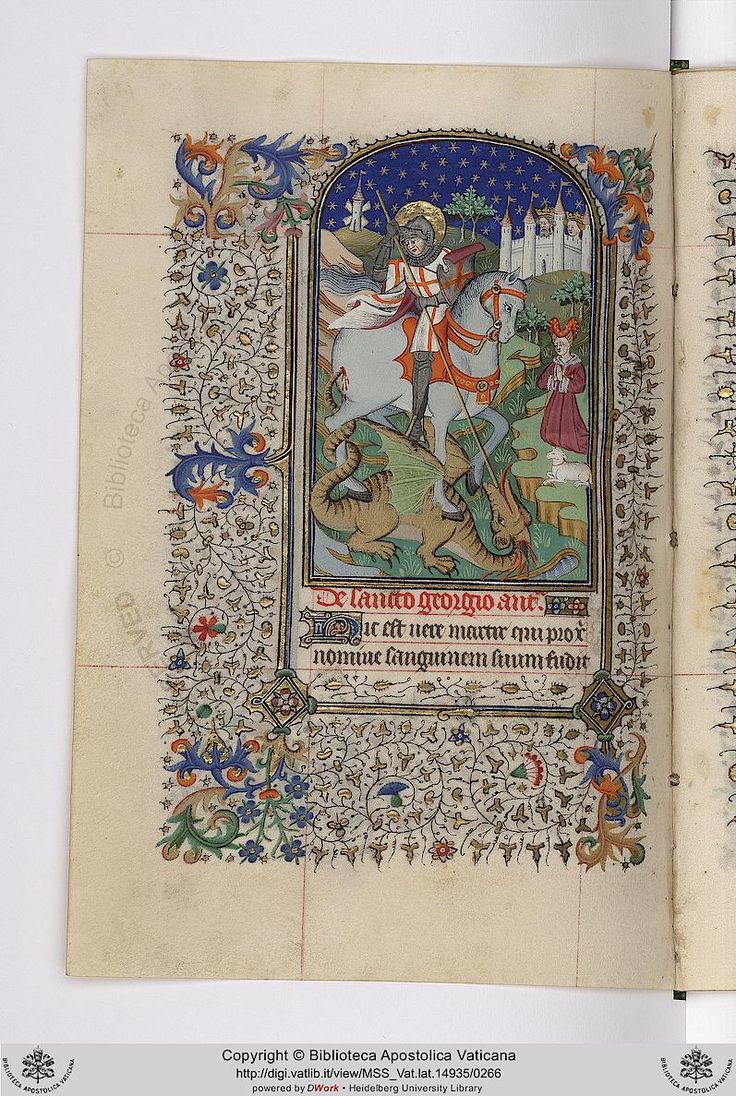 De sancto georgio ant̄.
Hic est uere martir qui pro xp̄i
nomine sanguinem suum fudit
RVED © Biblioteca Apo
Copyright © Biblioteca Apostolica Vaticana
http://digi.vatlib.it/view/MSS_Vat.lat.14935/0266
powered by DWork • Heidelberg University Library
BIBLIOTECA APOSTOLICA VATICANA
BIBLIOTECA APOSTOLICA VATICANA